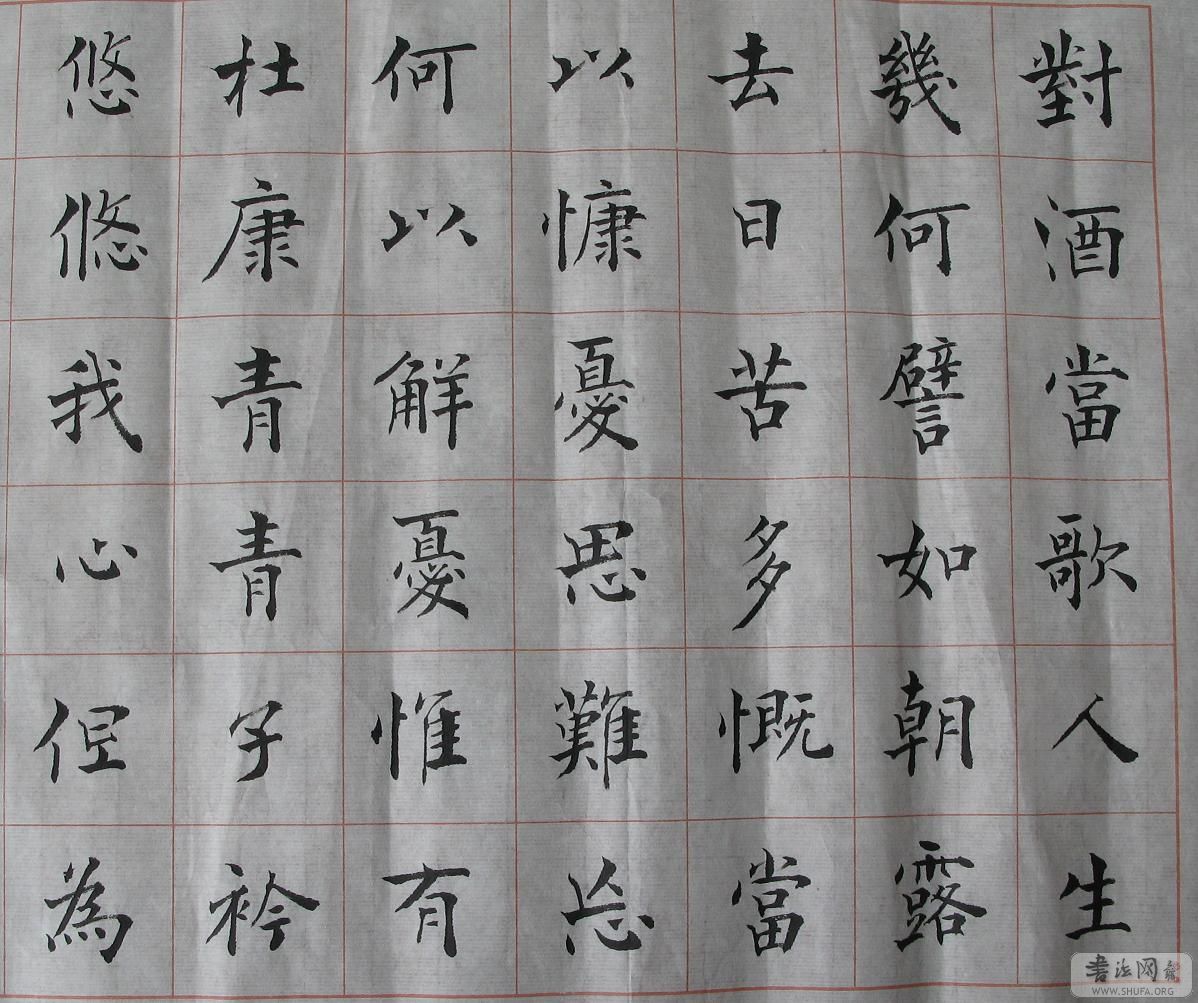 對酒當歌人生
幾何譬如朝露
去日苦多慨當
以慷憂思難忘
何以解憂惟有
杜康青青子衿
悠悠我心但為
書法网
WWW.SHUFA.ORG